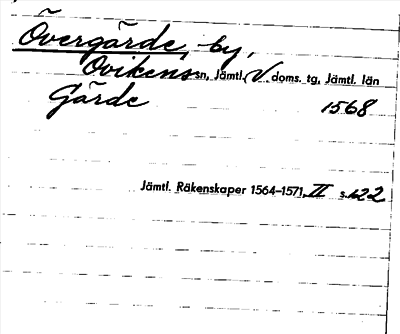 Övergärde, by,
Ovikens sn, Jämtl. V doms. tg, Jämtl. län
Gärde 1568
Jämtl. Räkenskaper 1564–1571, II s. 122